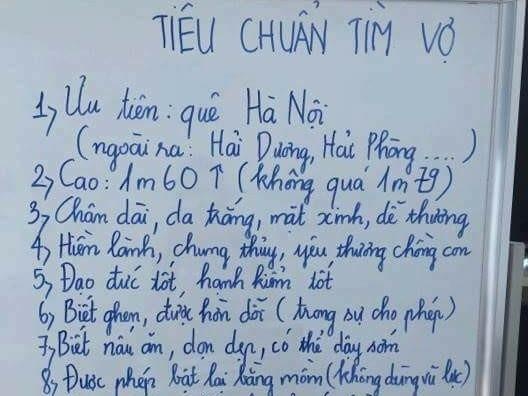 TIÊU CHUẨN TÌM VỢ
1, Ưu tiên: quê Hà Nội
(ngoài ra: Hải Dương, Hải Phòng....)
2, Cao: 1m60 ↑ (không quá 1m79)
3, Chân dài, da trắng, mặt xinh, dễ thương
4, Hiền lành, chung thủy, yêu thương chồng con
5, Đạo đức tốt, hạnh kiểm tốt
6, Biết ghen, được hờn dỗi (trong sự cho phép)
7, Biết nấu ăn, dọn dẹp, có thể dậy sớm
8, Được phép bật lại bằng mồm (không dùng vũ lực)